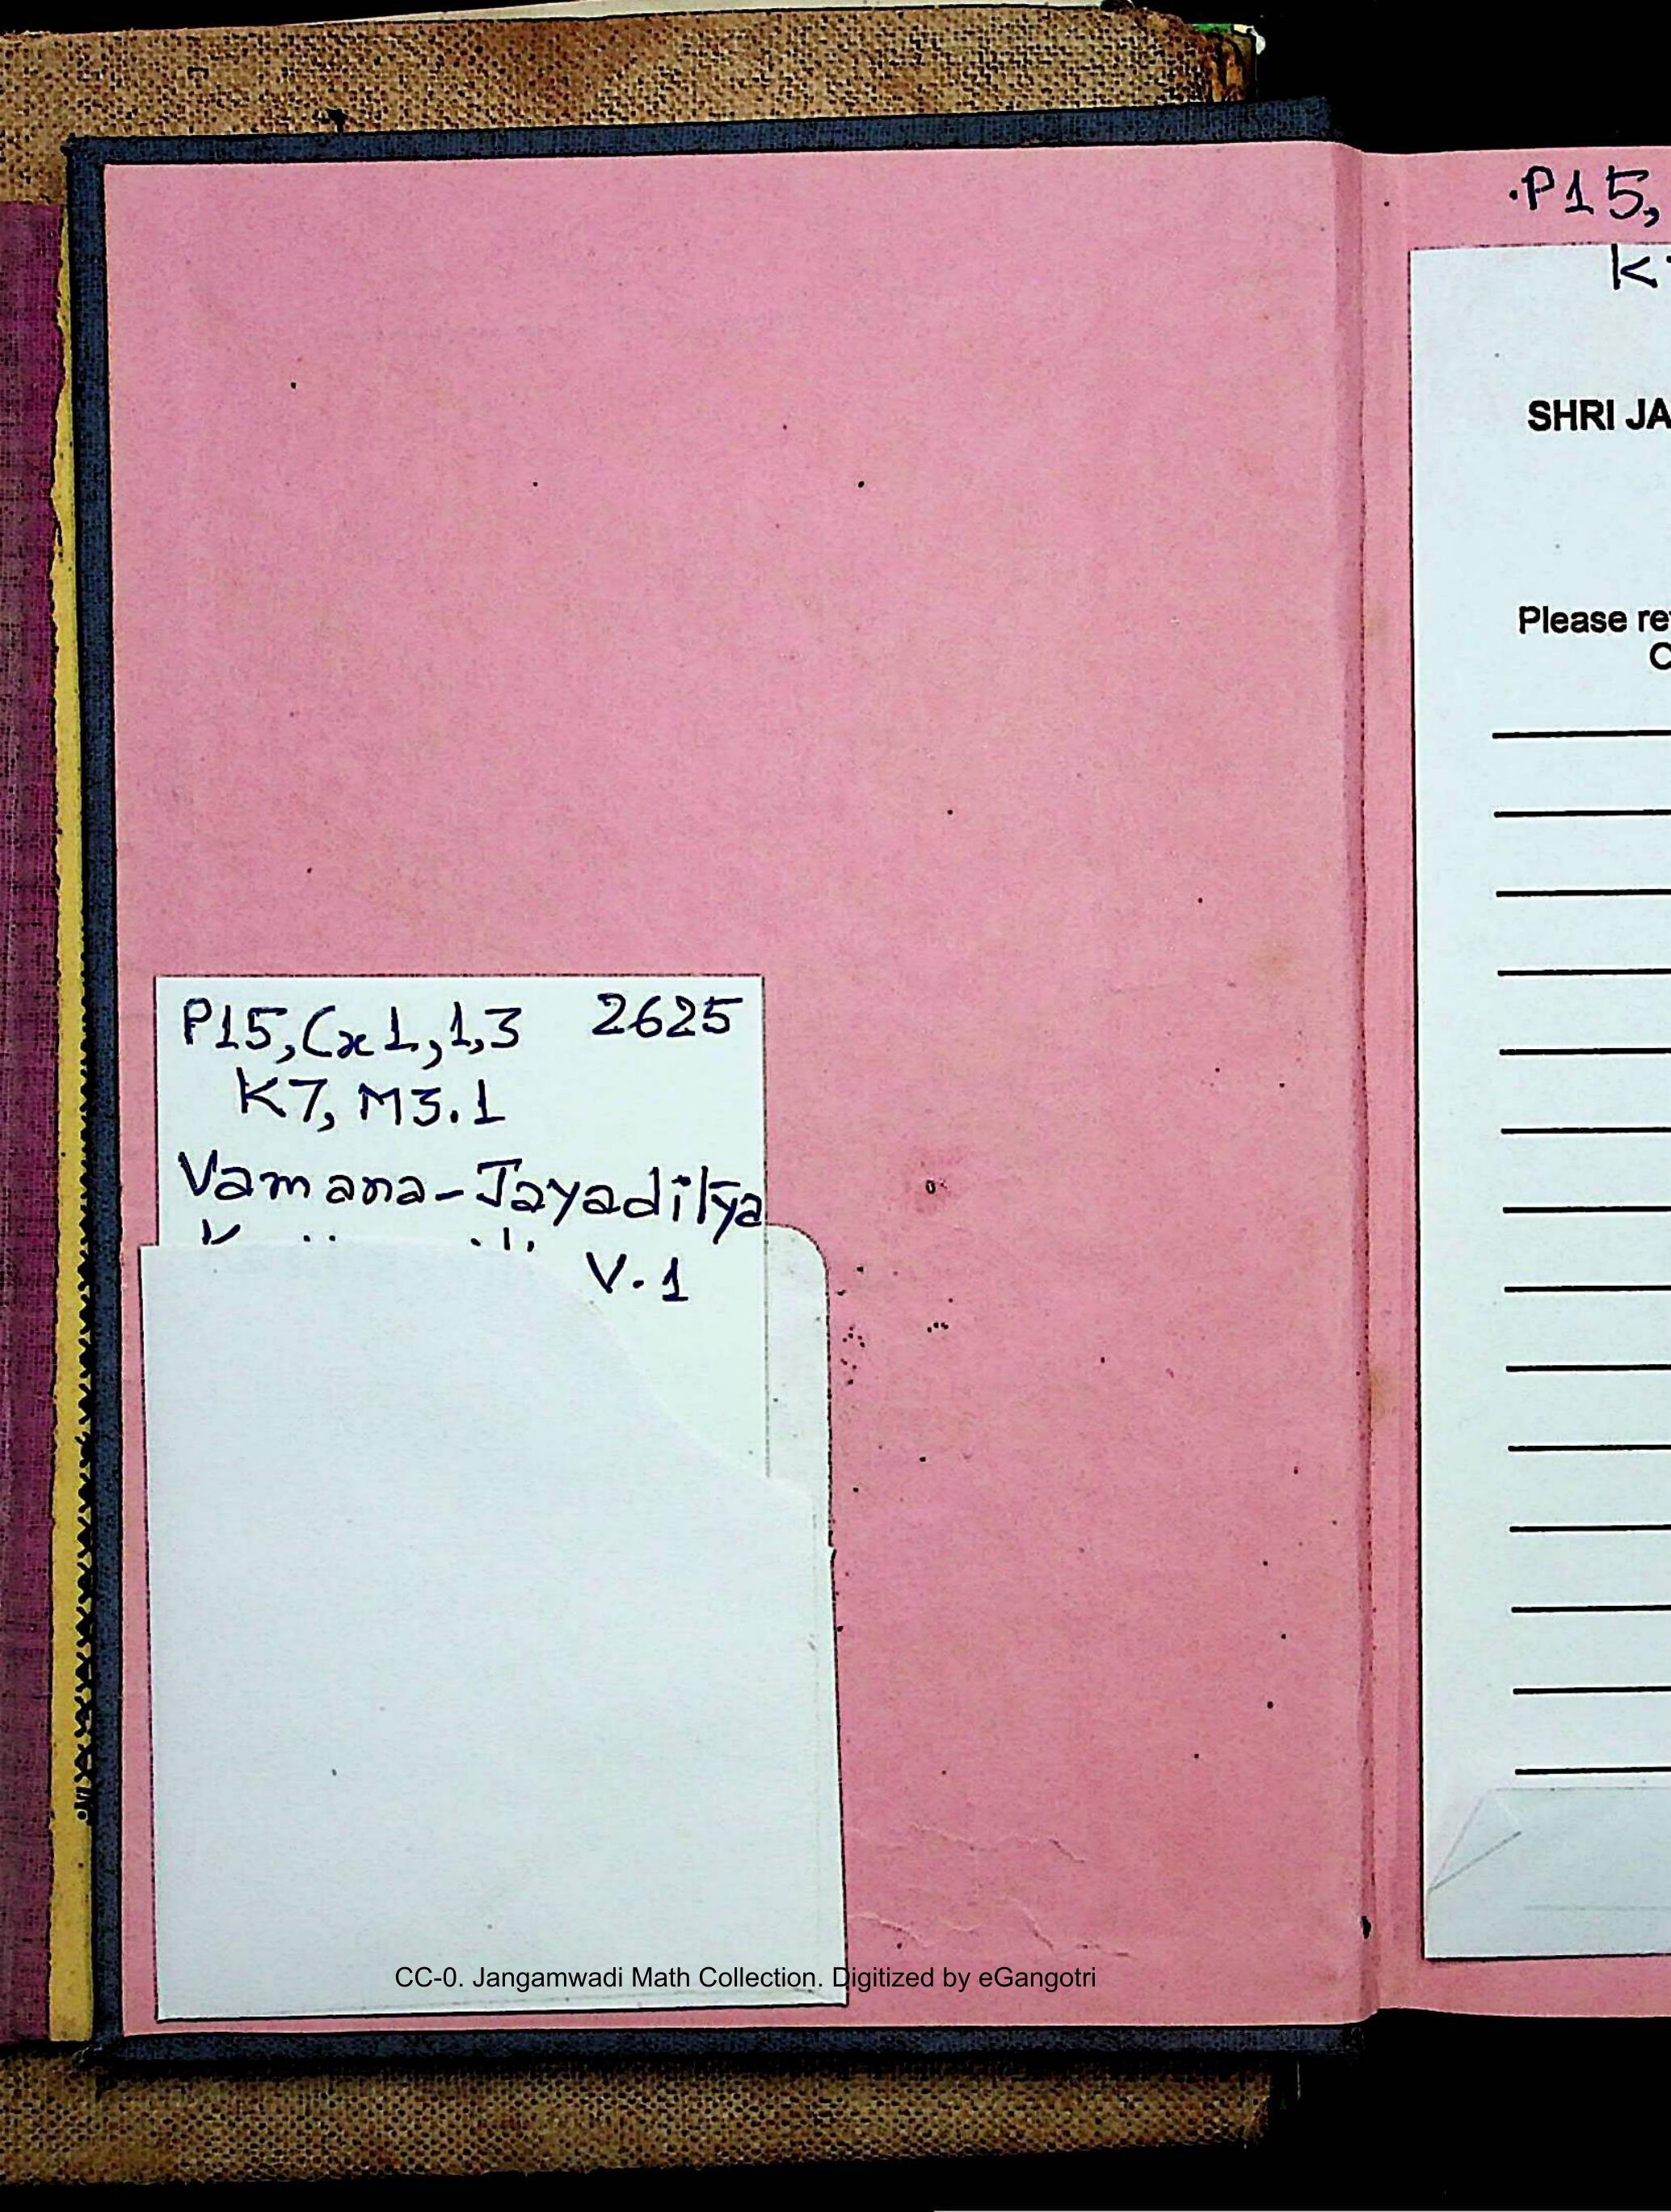 P15,Cx1,1,3 2625
K7, M3.1
Vamana-Jayaditya
V.1
.P15,
K
SHRI JA
Please re
C
CC-0. Jangamwadi Math Collection. Digitized by eGangotri